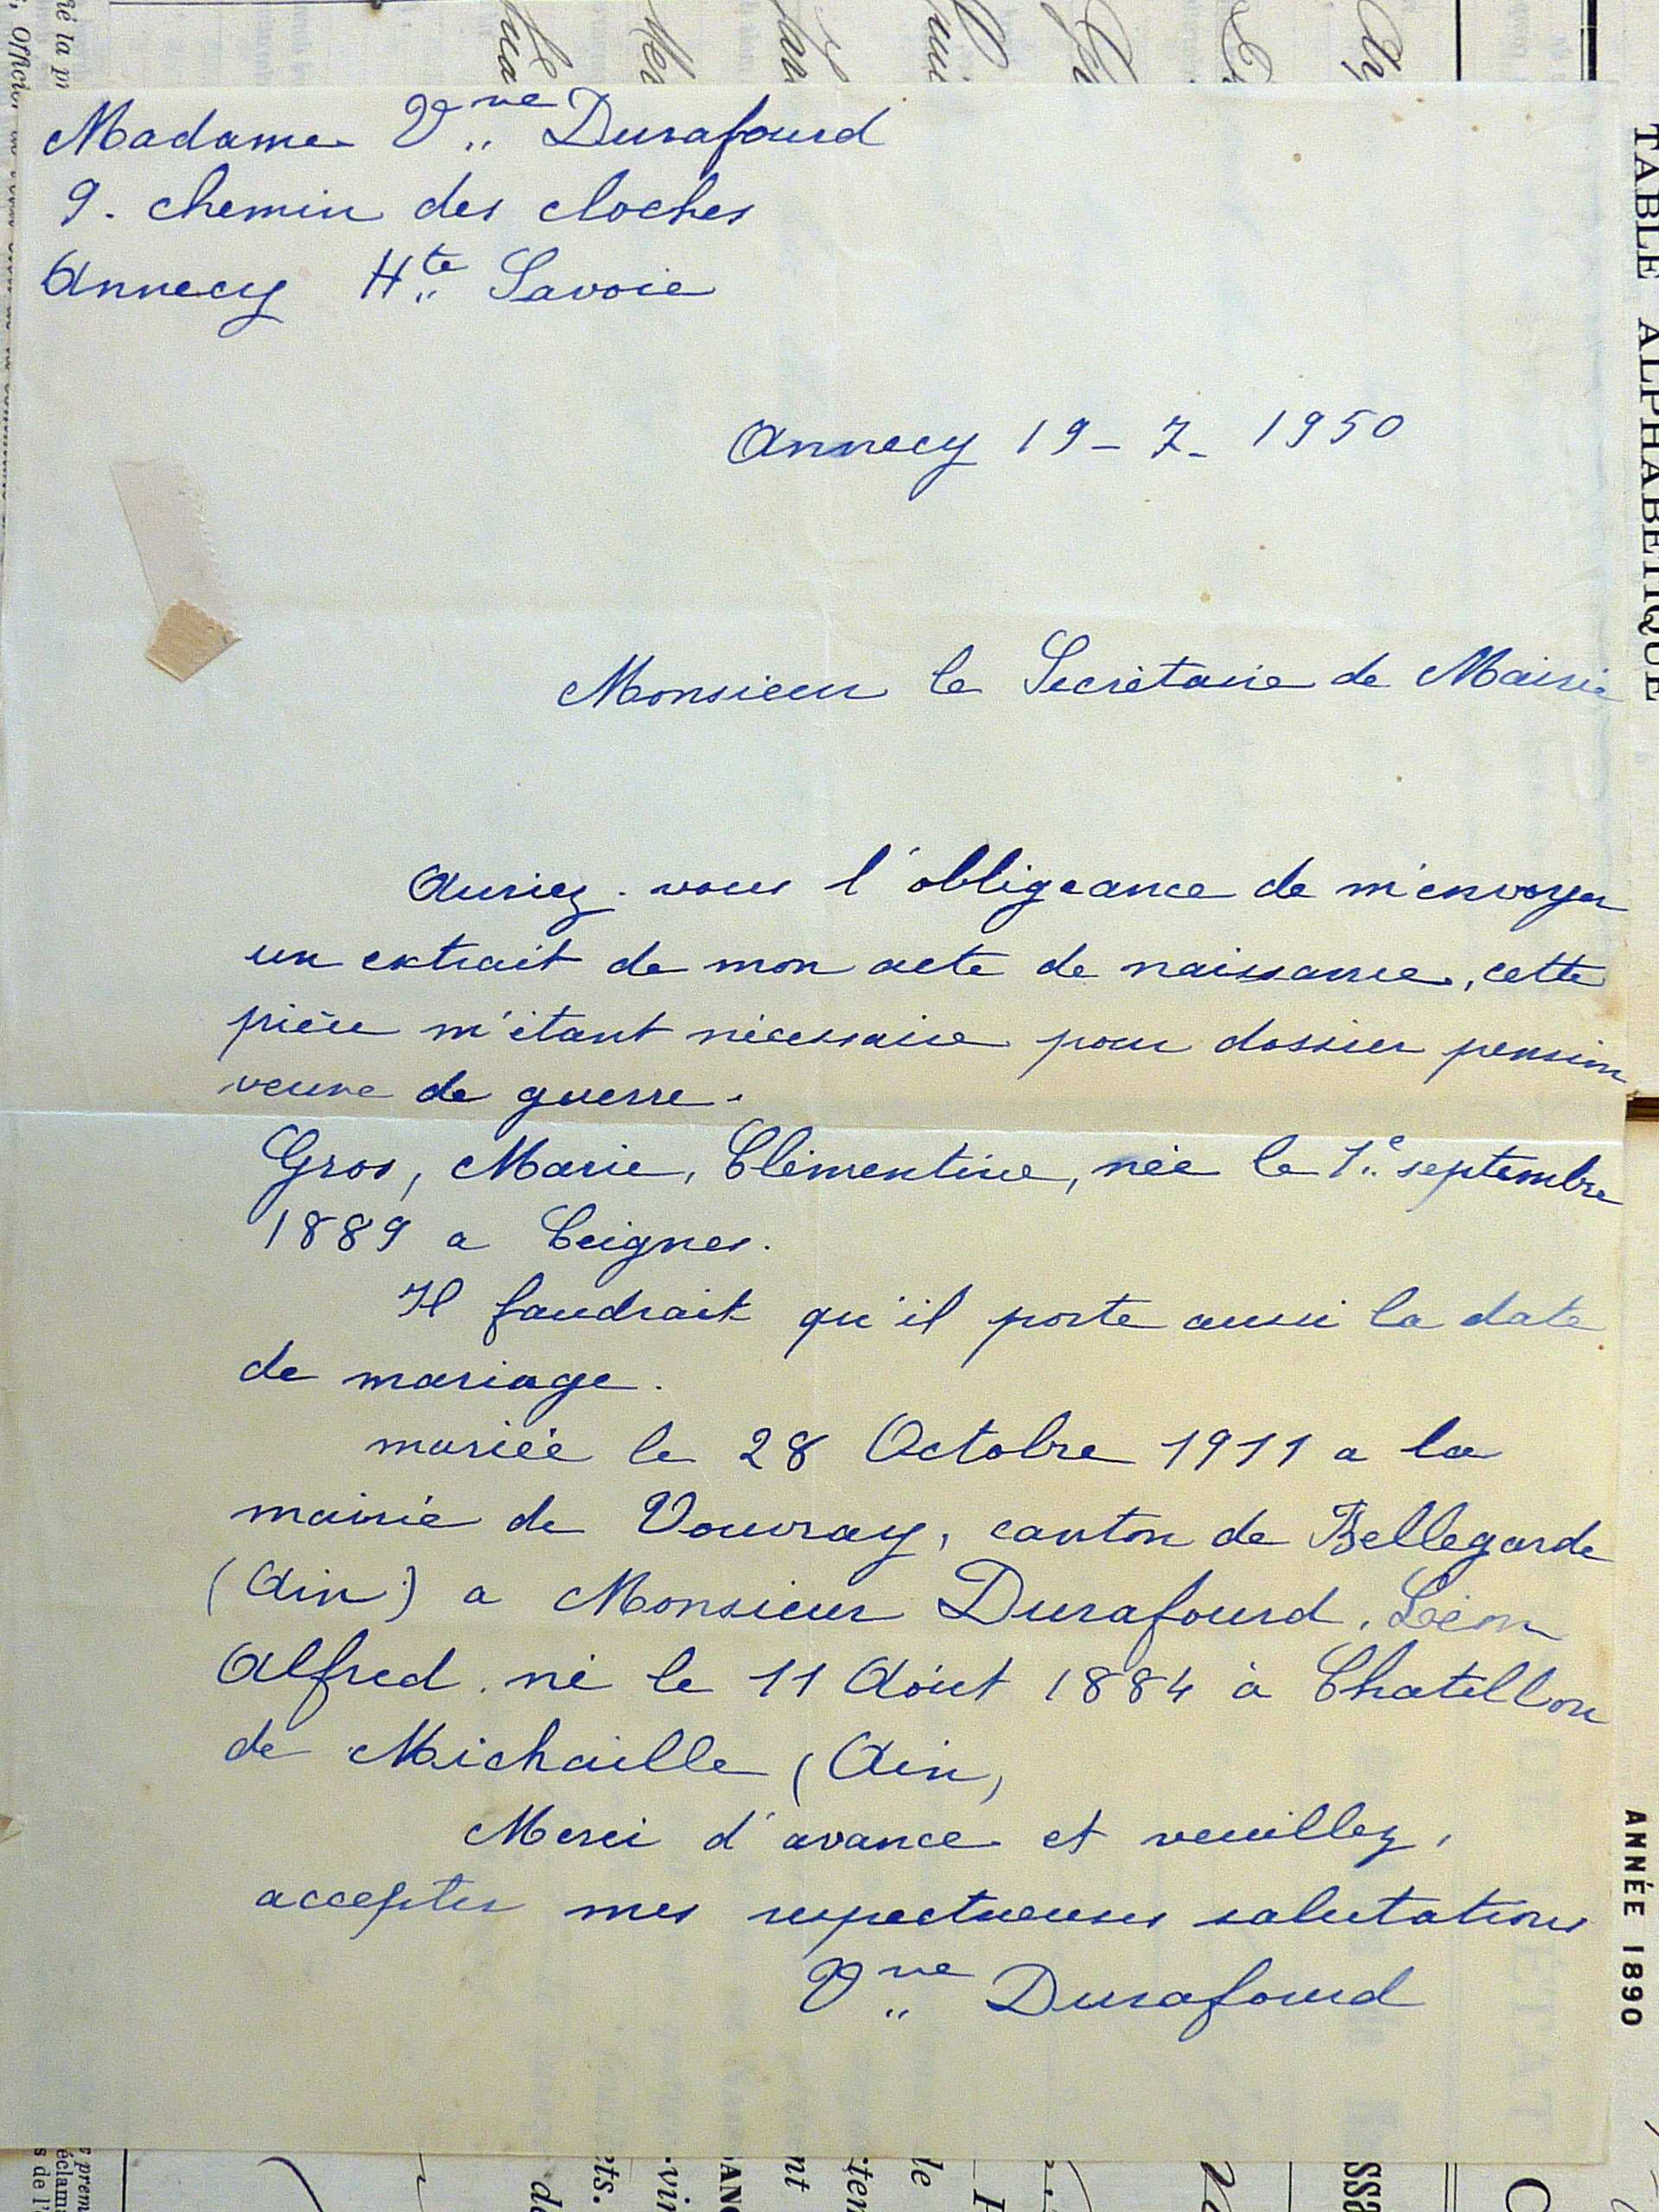 Madame Vve Durafourd
9. chemin des cloches
Annecy Hte Savoie
Annecy 19 - 7 - 1950
Monsieur le Secrétaire de Mairie
Auriez-vous l'obligeance de m'envoyer
un extrait de mon acte de naissance, cette
pièce m'étant nécessaire pour dossier pension
veuve de guerre.
Gros, Marie, Clémentine, née le 1e septembre
1889 a Ceignes.
Il faudrait qu'il porte aussi la date
de mariage.
mariée le 28 Octobre 1911 a la
mairie de Vouvray, canton de Bellegarde
(Ain) a Monsieur Durafourd, Léon
Alfred. né le 11 Août 1884 à Chatillon
de Michaille (Ain)
Merci d'avance et veuillez,
accepter mes respectueuses salutations
Vve Durafourd
TABLE ALPHABÉTIQUE
ANNÉE 1890